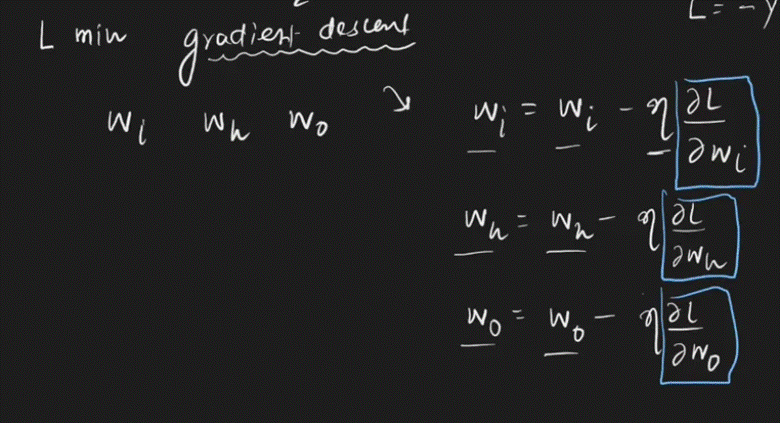 L = - y
L min gradient descent
Wi Wh Wo
Wi = Wi - η ∂L/∂Wi
Wh = Wh - η ∂L/∂Wh
Wo = Wo - η ∂L/∂Wo